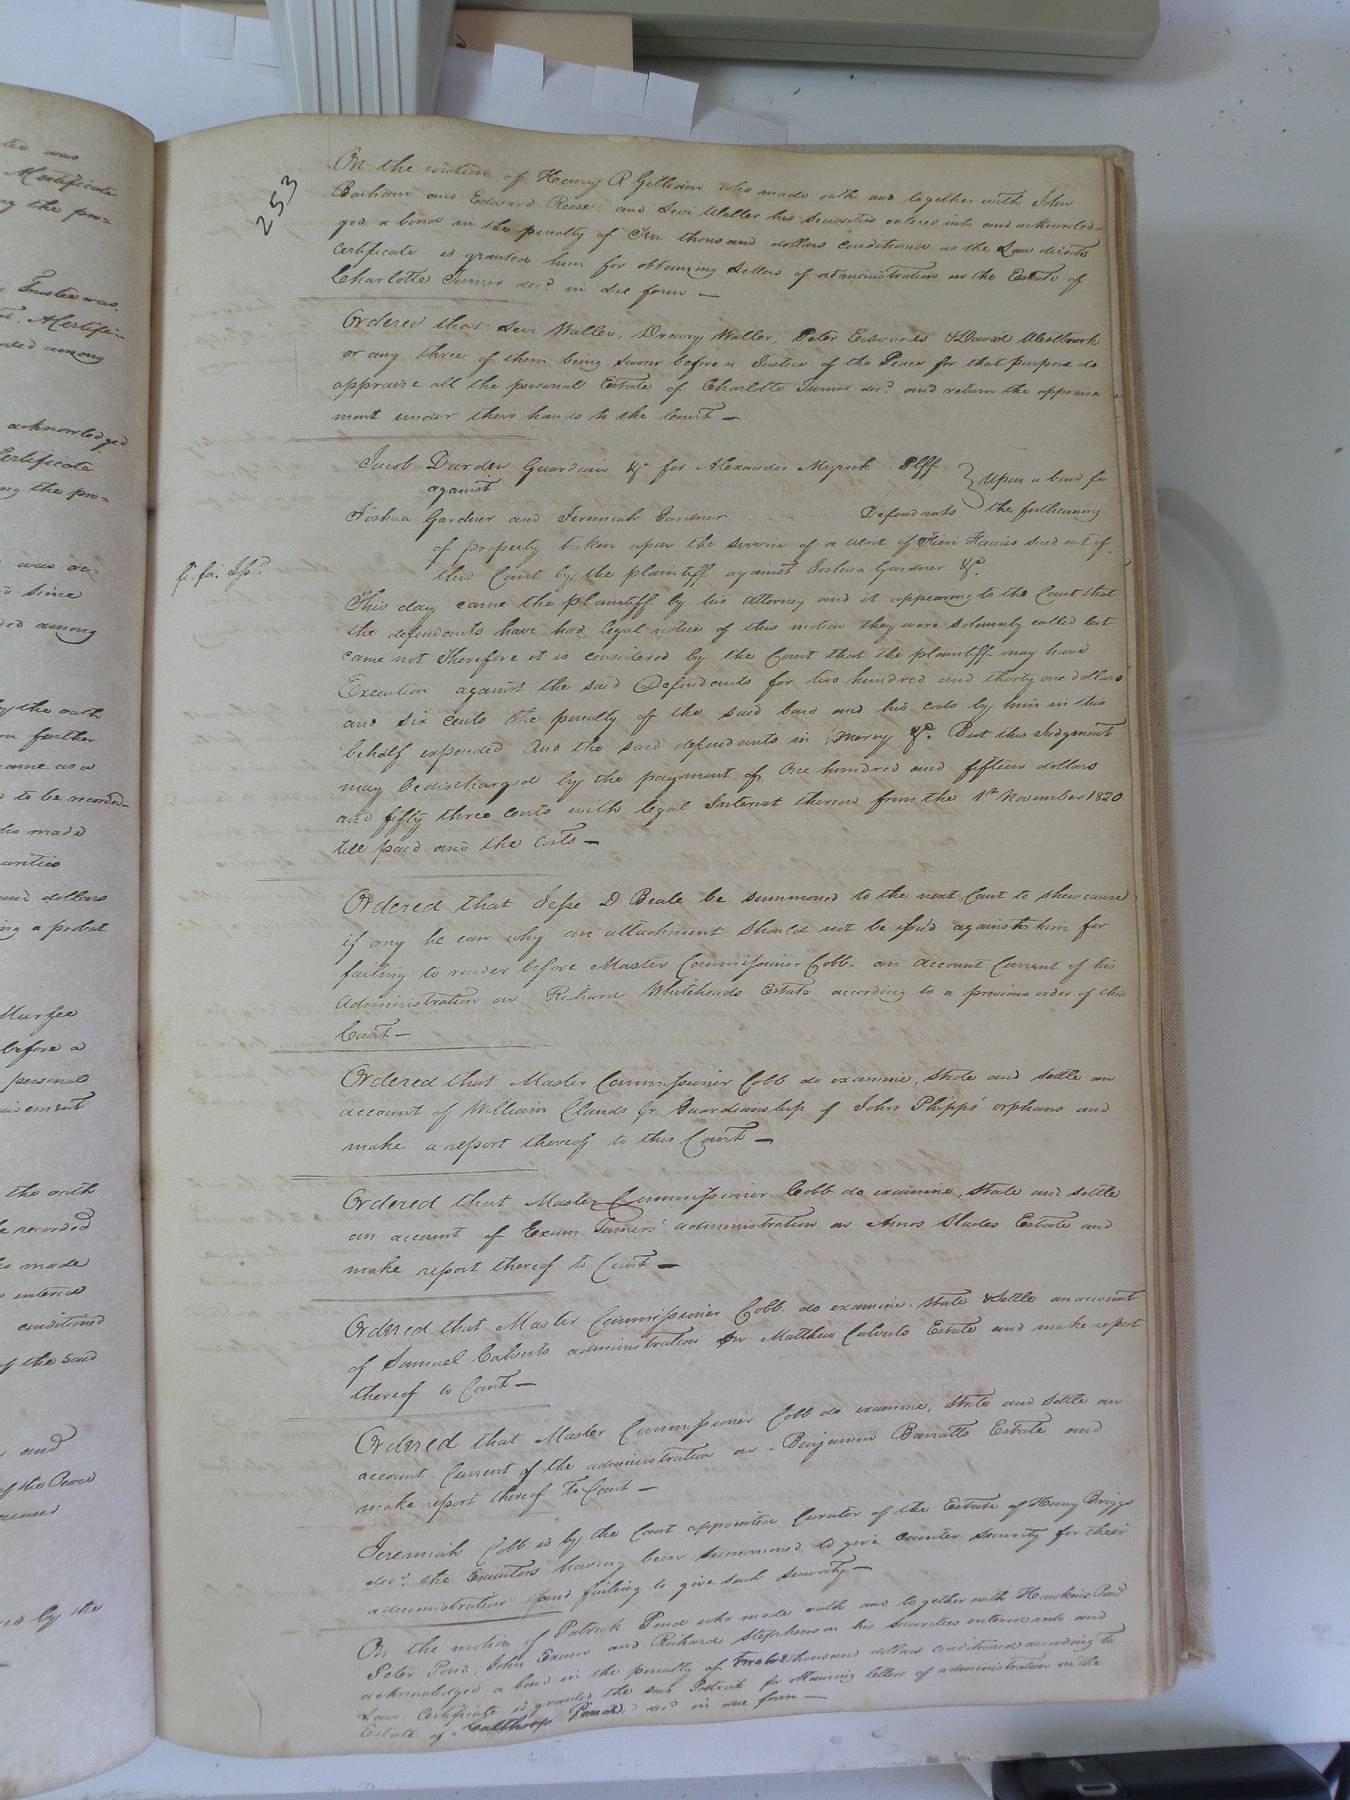 253
On the motion of Henry R Gilliam who made oath and together with John
Barham and Edward Reese and Levi Waller his securities entered into and acknowled-
ged a bond in the penalty of Ten thousand dollars conditioned as the Law directs
Certificate is granted him for obtaining Letters of administration on the Estate of
Charlotte Turner decd. in due form —
Ordered that Levi Waller, Drewry Waller, Peter Edwards & David Westbrook
or any three of them being sworn before a Justice of the Peace for that purpose do
appraise all the personal Estate of Charlotte Turner decd. and return the appraise
ment under their hands to the Court —
Jacob Durden Guardian &c for Alexander Myrick Plff
against
Upon a bond for
Joshua Gardner and Jeremiah Gardner Defendants
the forthcoming
of property taken upon the service of a writ of Fieri Facias sued out of
fi. fa. Issd.
this Court by the plaintiff against Joshua Gardner &c.
This day came the plaintiff by his attorney and it appearing to the Court that
the defendants have had legal notice of this motion they were solemnly called but
came not Therefore it is considered by the Court that the plaintiff may have
Execution against the said Defendants for two hundred and thirty one dollars
and six cents the penalty of the said bond and his costs by him in this
behalf expended And the said defendants in mercy &c. But this Judgment
may be discharged by the payment of One hundred and fifteen dollars
and fifty three cents with legal Interest thereon from the 1st November 1820
till paid and the Costs —
Ordered that Jesse D Beale be summoned to the next Court to shew cause
if any he can why an attachment should not be issd. against him for
failing to render before Master Commissioner Cobb. an account Current of his
Administration on Richard Whiteheads Estate according to a previous order of this
Court —
Ordered that Master Commissioner Cobb do examine, state and settle an
account of William Clauds Jr. Guardianship of John Phipps' orphans and
make a report thereof to this Court —
Ordered that Master Commissioner Cobb do examine, state and settle
an account of Exum Turners' administration on Amos Slades Estate and
make report thereof to Court —
Ordered that Master Commissioner Cobb. do examine, state & settle an account
of Samuel Calverts administration on Matthew Calverts Estate and make report
thereof to Court —
Ordered that Master Commissioner Cobb do examine, state and settle an
account Current of the administration on Benjamin Barratts Estate and
make report thereof to Court —
Jeremiah Cobb is by the Court appointed Curator of the Estate of Henry Briggs
decd. the Executors having been summoned to give counter security for their
administration and failing to give such security —
On the motion of Patrick Pond who made oath and together with Hawkins Pond
Peter Pond, John Exum and Richard Stephenson his securities entered into and
acknowledged a bond in the penalty of twelve thousand dollars conditioned according to
Law Certificate is granted the said Patrick for obtaining letters of administration on the
Estate of Calthorp Pond decd. in due form —